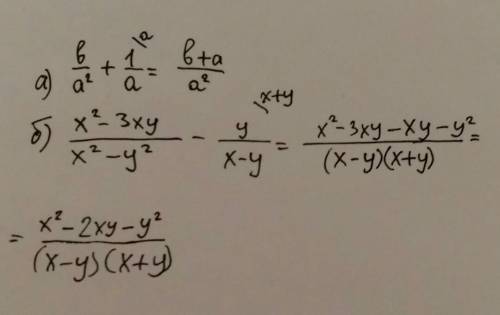 а) b/a² + 1/a \a = b+a/a²
б) x²-3xy/x²-y² - y/x-y \x+y = x²-3xy-xy-y²/(x-y)(x+y) =
= x²-2xy-y²/(x-y)(x+y)